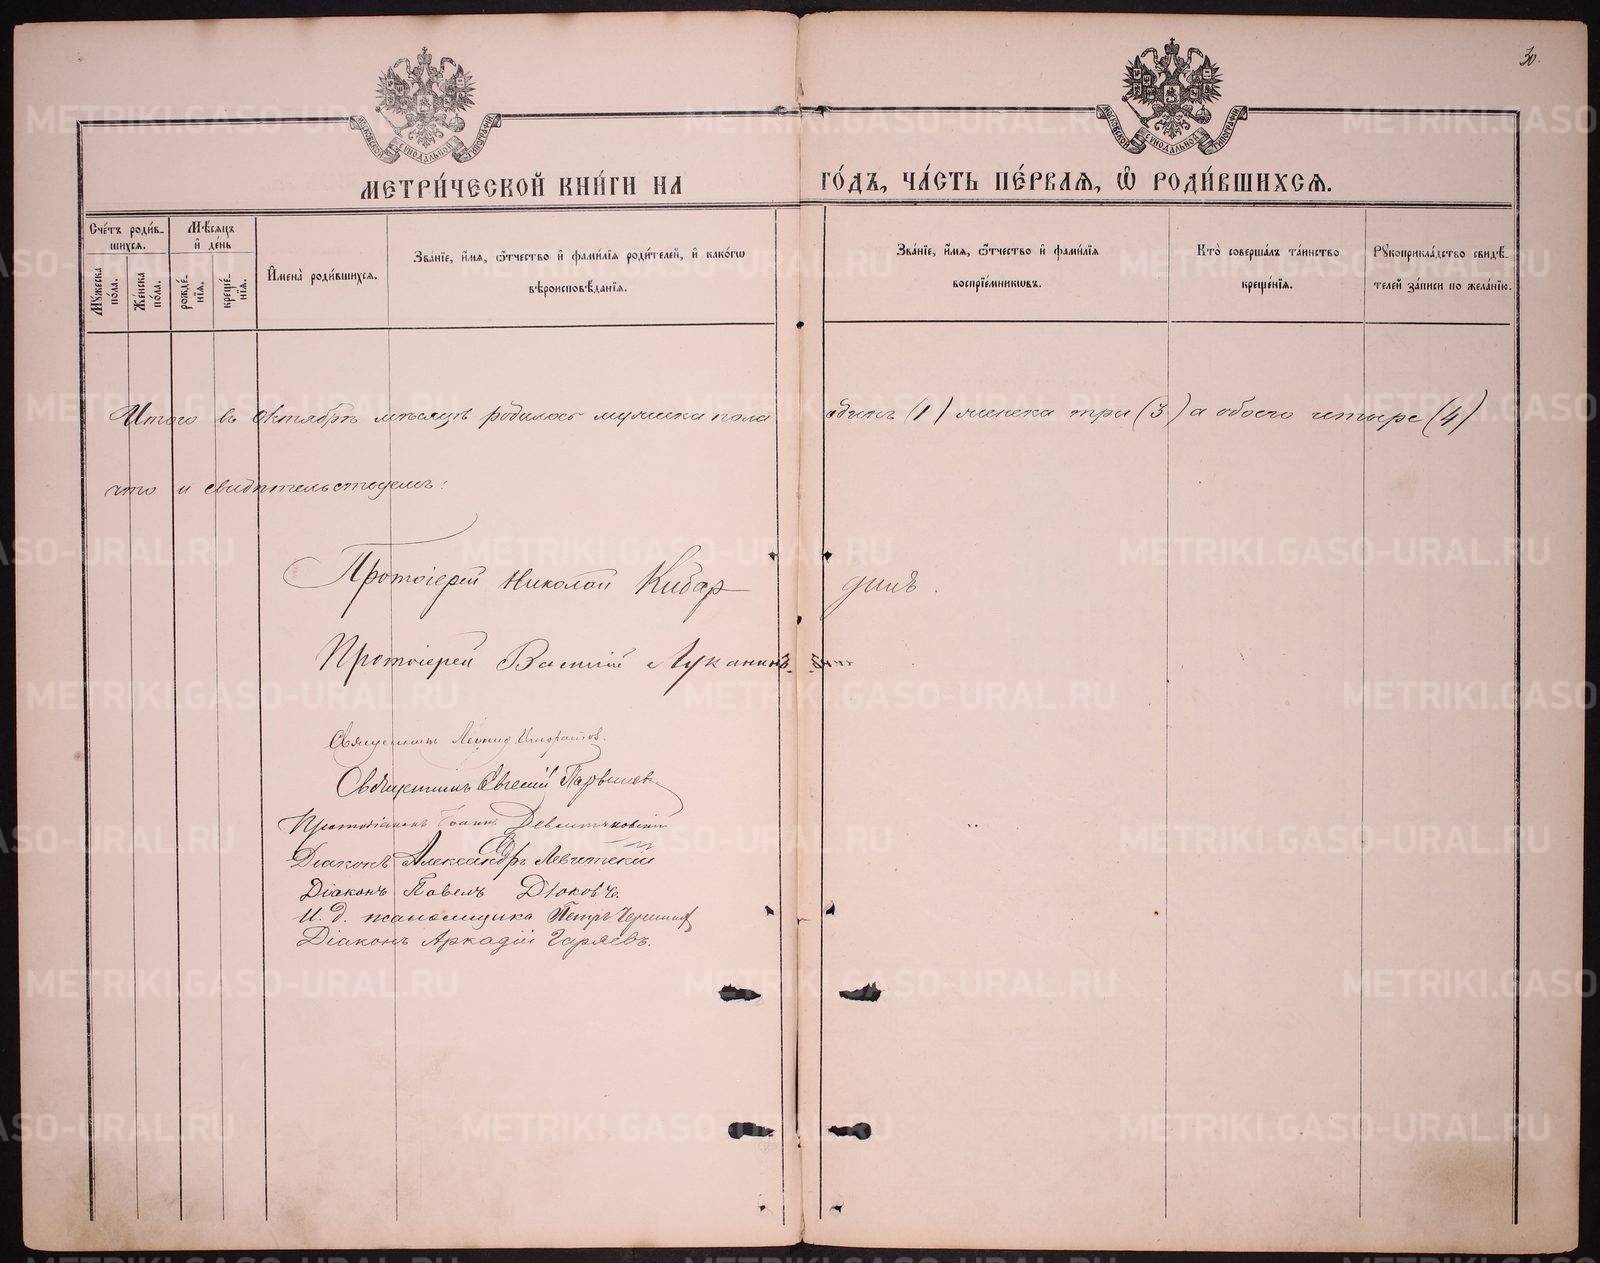 30.
МОСКОВСКОЙ СѴНОДАЛЬНОЙ ТИПОГРАФІИ
МОСКОВСКОЙ СѴНОДАЛЬНОЙ ТИПОГРАФІИ
МЕТРИ́ЧЕСКОЙ КНИ́ГИ НА ГО́ДЪ, ЧА́СТЬ ПЕ́РВАѦ, Ѽ РОДИ́ВШИХСѦ.
Сче́тъ роди́в-
шихсѧ.
Мꙋжеска по́ла.
Же́нска по́ла.
Мѣ́сѧцъ
и҆ де́нь
рожде́-
нїѧ.
креще́-
нїѧ.
И҆мена̀ роди́вшихсѧ.
Зва́нїе, и҆́мѧ, ѻ҆́тчество и҆ фами́лїѧ роди́телей, и҆ како́гѡ
вѣроисповѣ́данїѧ.
Зва́нїе, и҆́мѧ, ѻ҆́тчество и҆ фами́лїѧ
воспрїе́мникѡвъ.
Кто̀ соверша́лъ та́инство
креще́нїѧ.
Рꙋкоприкла́дство свидѣ́-
телей за́писи по жела́нїю.
Итого въ Октябрѣ мѣсяцѣ родилось мужеска пола одинъ (1) женска три (3) а обоего четыре (4)
что и свидѣтельствуемъ:
Протоіерей Николай Кибардинъ.
Протоіерей Василій Луканинъ.
Священникъ Леонид Игноратов.
Священникъ Евгеній
Протодіаконъ Іоаннъ
Діаконъ Александръ Левитскій
Діаконъ Павелъ Дюковъ.
И. д. псаломщика Петръ
Діаконъ Аркадій Гаряевъ.
METRIKI.GASO-URAL.RU